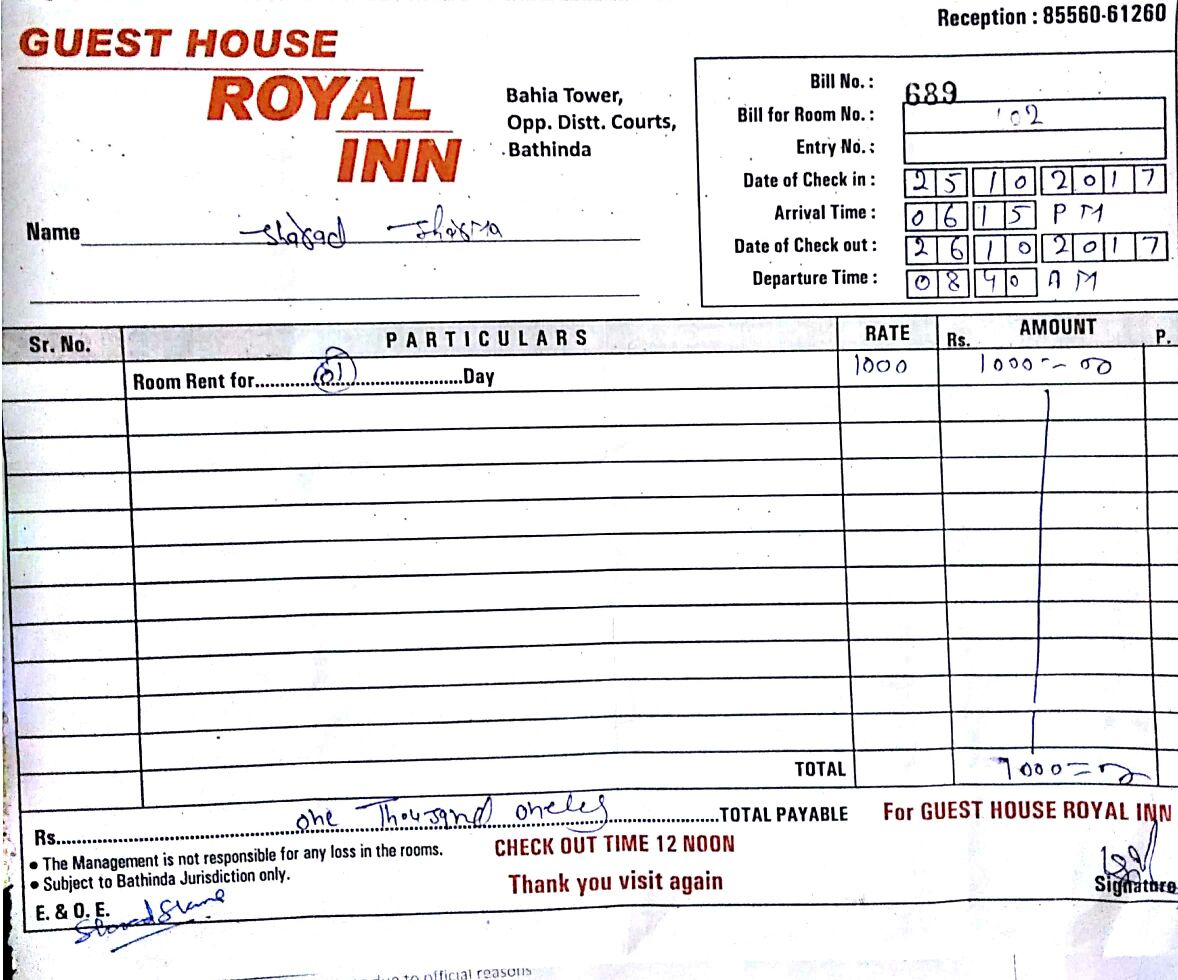 Reception : 85560-61260
GUEST HOUSE
ROYAL
INN
Bahia Tower,
Opp. Distt. Courts,
Bathinda
Bill No. : 689
Bill for Room No. : 102
Entry No. :
Date of Check in : 25 10 2017
Arrival Time : 06 15 PM
Date of Check out : 26 10 2017
Departure Time : 08 40 AM
Name Sharad Sharma
Sr. No. PARTICULARS RATE Rs. AMOUNT P.
Room Rent for..............01......................Day 1000 1000-00
TOTAL 1000=00
Rs. one Thousand onely TOTAL PAYABLE
For GUEST HOUSE ROYAL INN
• The Management is not responsible for any loss in the rooms.
• Subject to Bathinda Jurisdiction only.
CHECK OUT TIME 12 NOON
Thank you visit again
Signature
E. & O. E.
to official reasons